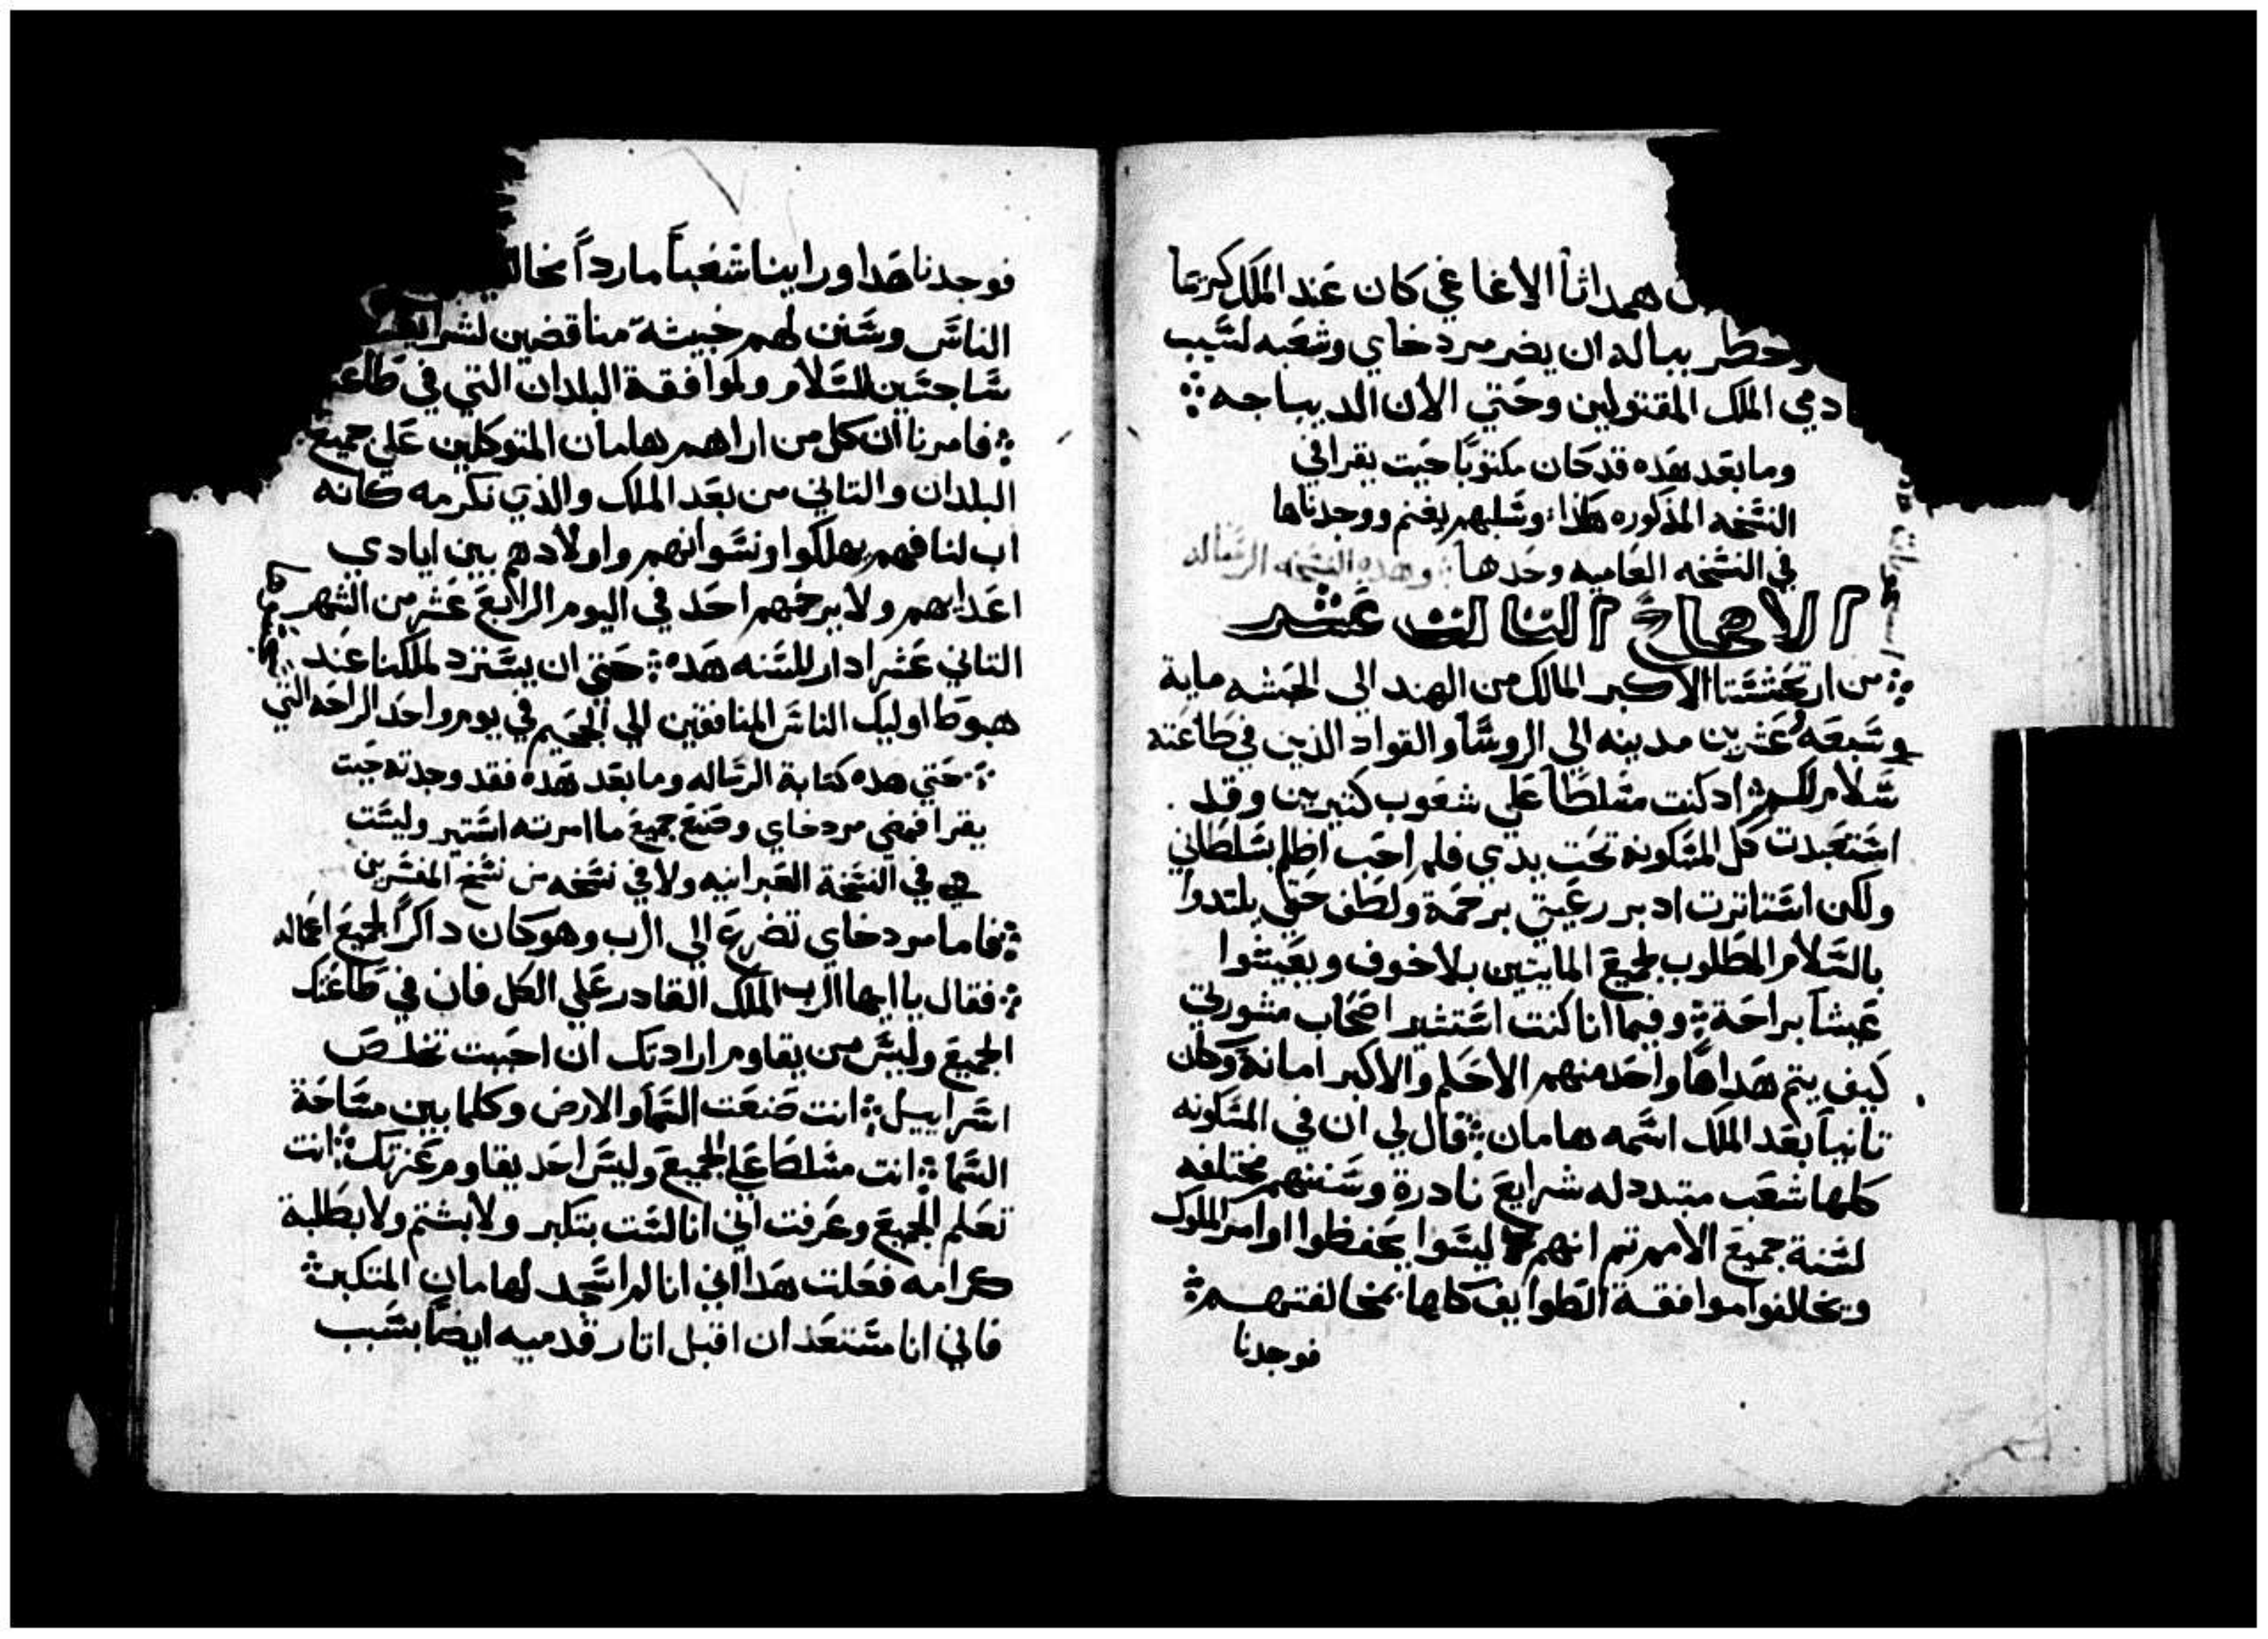 همداثا الاغاغي كان عند الملك كريمًا
وخطر بباله ان يضر مردخاي وشعبه لسبب
ادمي الملك المقتولين وحتي الان الديباجه
وما بعد هده قد كان مكتوبًا حيت يقرا في
النسخه المذكوره هكذا: وسلبهم يغنم ووجدناها
في النسخه العاميه وحدها وهده النسخه الرساله
الاصحاح التالت عشر
من ارتحششتا الاكبر المالك من الهند الي الحبشه ماية
وسبعه وعشرين مدينه الي الروسا والقواد الذين في طاعته
سلام لكم اد كنت مسلطًا علي شعوب كتيرين وقد
استعبدت كل المسكونة تحت يدي فلم احب اظلم بسلطاني
ولكن استاترت ادبر رعيتي برحمة ولطف حتي يلتدوا
بالسلام المطلوب لجميع المايتين بلا خوف ويعيشوا
عيشًا براحة وفيما انا كنت استشير اصحاب مشورتي
كيف يتم هدا ها واحد منهم الاحلم والاكبر امانة وكان
تانيًا بعد الملك اسمه هامان قال لي ان في المسكونه
كلها شعب متبدد له شرايع نادرة وسننهم مختلفه
لسنة جميع الامم تم انهم ليسوا يحفظوا اوامر الملوك
ويخالفوا موافقة الطوايف كلها بمخالفتهم
فوجدنا
فوجدنا هدا وراينا شعبًا ماردًا مخال
الناس وسنن لهم خبيثه مناقضين لشرايع
ساجسين للسلام ولموافقة البلدان التي في طاعة
فامرنا ان كل من اراهم هامان المتوكلين علي جميع
البلدان والتاني من بعد الملك والذي نكرمه كانه
اب لنا فهم يهلكوا ونسوانهم واولادهم بين ايادي
اعدايهم ولا يرحمهم احد في اليوم الرابع عشر من الشهر
التاني عشر ادار للسنه هده حتي ان يسترد لملكنا عند
هبوط اوليك الناس المنافقين الي الجحيم في يوم واحد الراحه التي
حتي هده كتابة الرساله وما بعد هده فقد وجدته حيت
يقرا فمضي مردخاي وصنع جميع ما امرته استير وليست
هي في النسخة العبرانيه ولا في نسخه من نسخ المفسرين
فاما مردخاي تضرع الي الرب وهو كان داكرًا لجميع اعماله
فقال يا ايها الرب الملك القادر علي الكل فان في طاعتك
الجميع وليس من يقاوم ارادتك ان احببت تخلص
اسراييل انت صنعت السما والارض وكلما بين مساحة
السما انت مسلطًا علي الجميع وليس احد يقاوم عزتك انت
تعلم الجميع وعرفت اني انا لست بتكبر ولا بشتم ولا بطلبة
كرامه فعلت هدا اني انا لم اسجد لهامان المتكبر
فاني انا مستعد ان اقبل اتار قدميه ايضًا بسبب